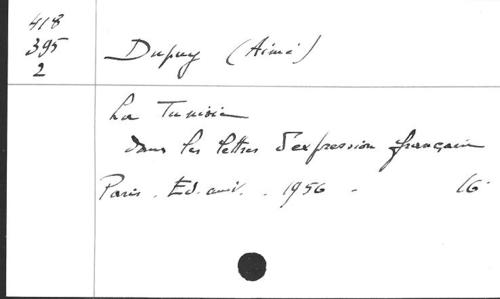 418
395
2
Dupuy (Aimé)
La Tunisie
dans les lettres d'expression française
Paris. Ed. univ. . 1956 - 16°